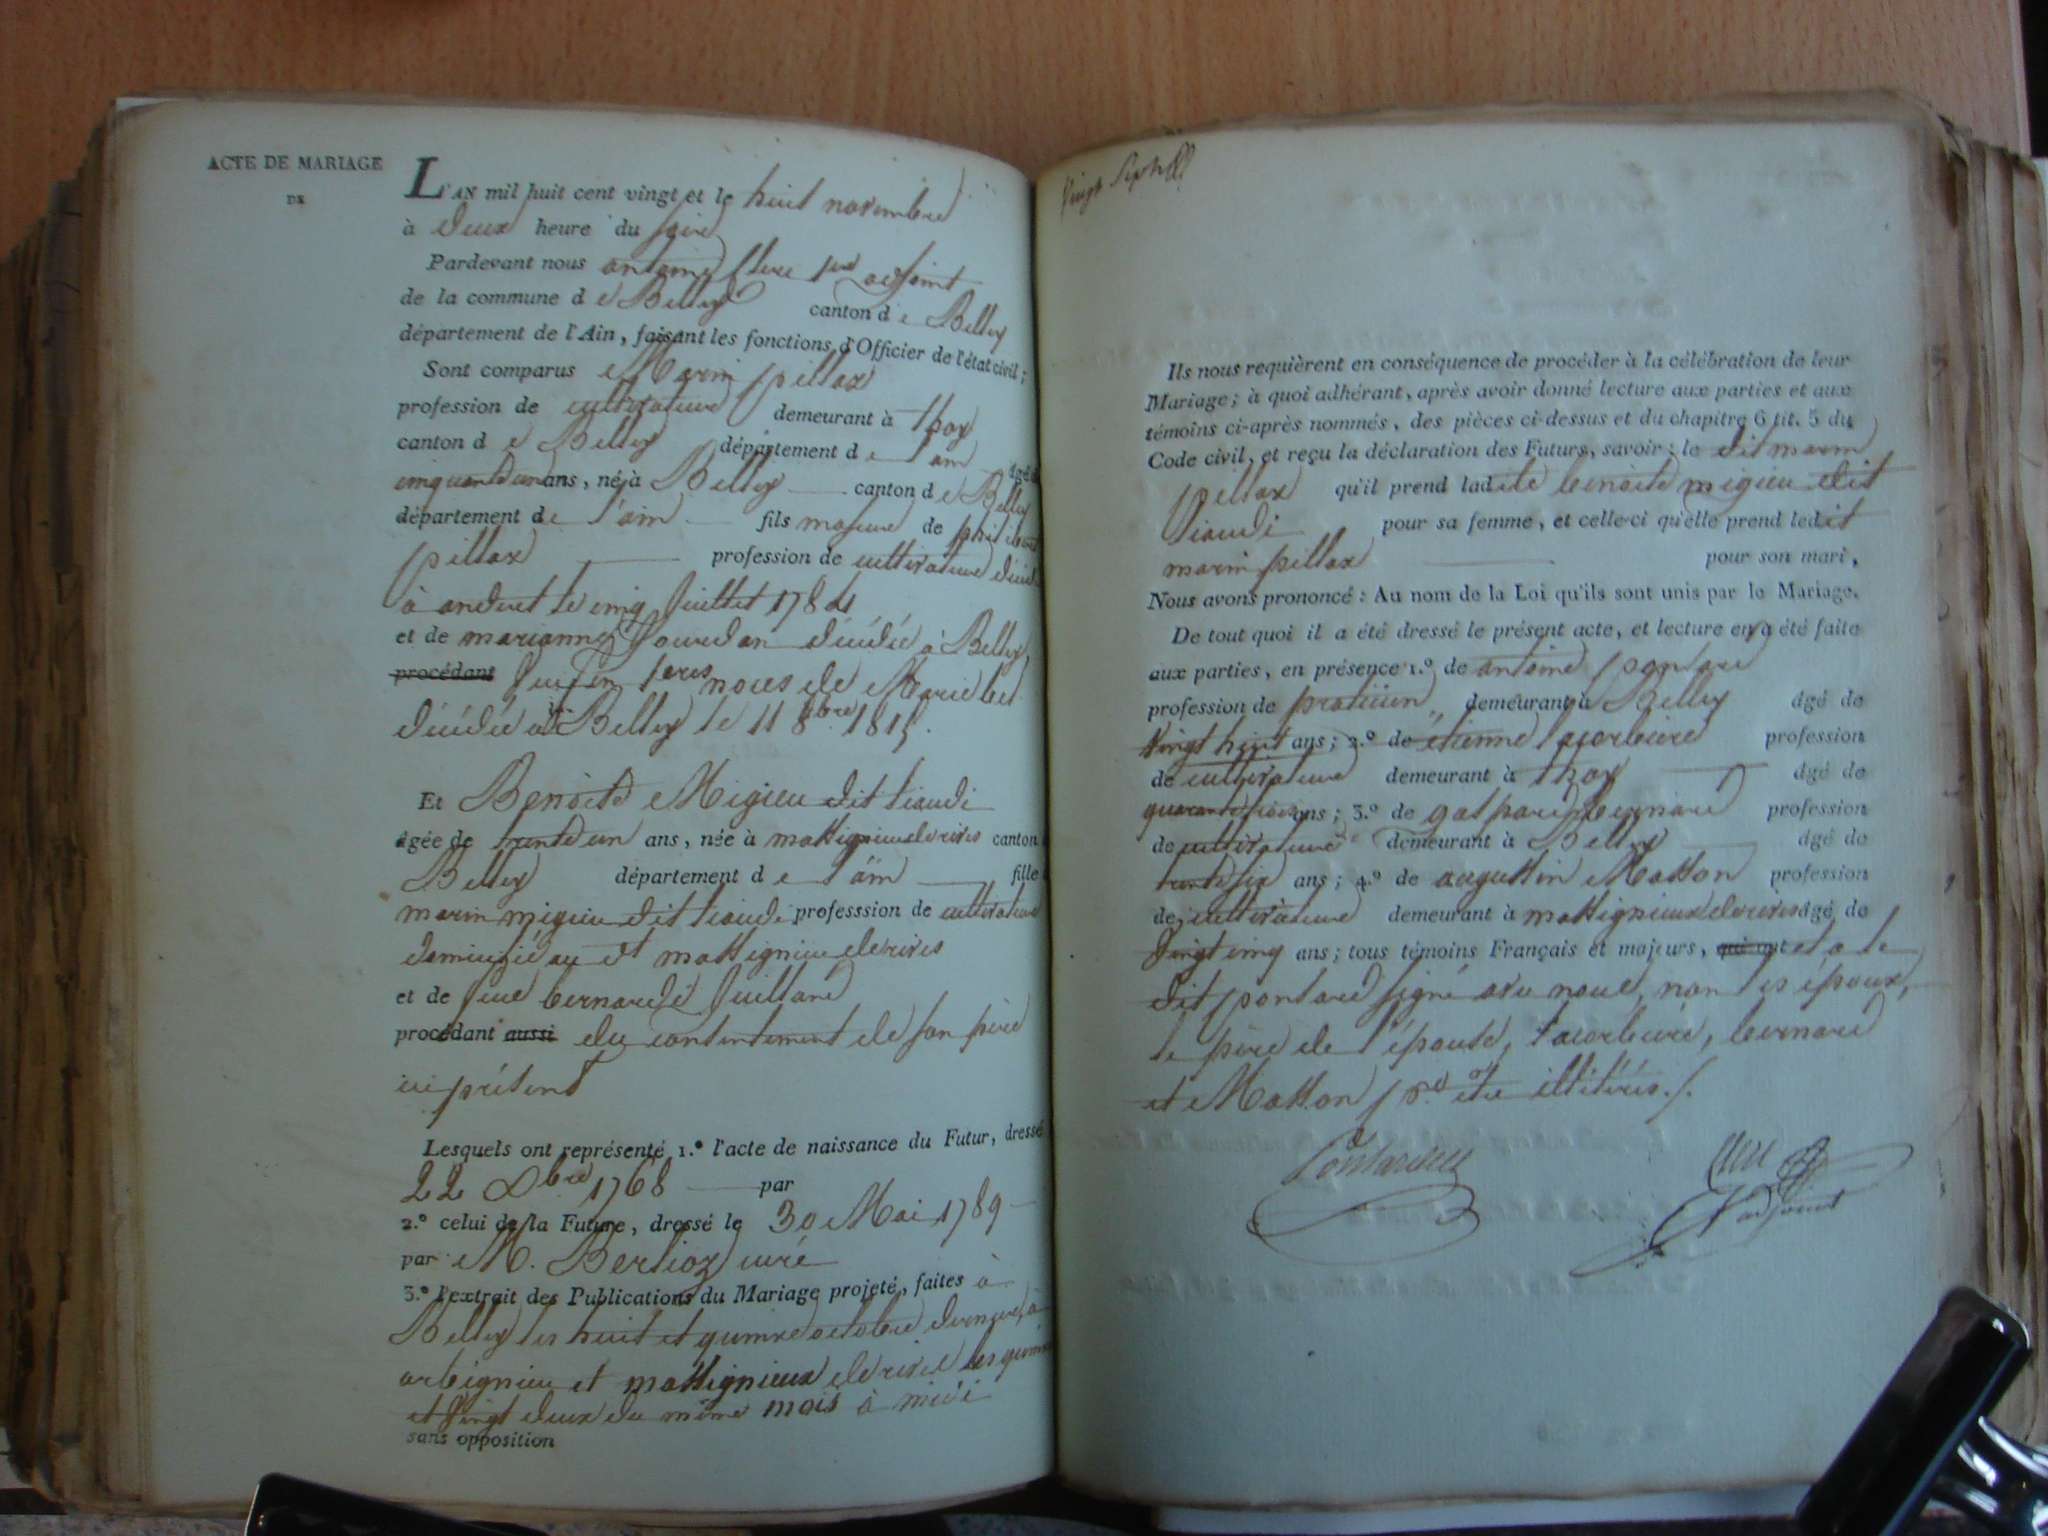 ACTE DE MARIAGE
DE
L'AN mil huit cent vingt et le huit novembre
à deux heure du soire
Pardevant nous antoine Clerc 1er adjoint
de la commune d e Belley canton d e Belley
département de l'Ain, faisant les fonctions d'Officier de l'état civil;
Sont comparus Marin pillax
profession de cultivateur demeurant à thoy
canton d e Belley département d e l'ain âgé d
cinquante un ans, né à Belley canton d e Belley
département de l'ain fils majeur de philibert
pillax profession de cultivateur décédé
à andert le cinq Juillet 1784
et de marianne Jourdan décédée à Belley
procédant veuf en 1eres noces de Marie
décédée à Belley le 11 8bre 1815.
Et Benoite Migieu dit liaudi
âgée de trente un ans, née à massignieu de rives canton
Belley département d e l'ain fille
marin migieu dit liaudi professsion de cultivateur
domicilié au dt massignieu de rives
et de feue bernarde Juilland
procédant aussi du consentement de son père
ici présent
Lesquels ont représenté 1.º l'acte de naissance du Futur, dressé
22 Xbre 1768 par
2.º celui de la Future, dressé le 30 Mai 1789
par M. Berlioz curé
3.º l'extrait des Publications du Mariage projeté, faites à
Belley les huit et quinze octobre dernier, à
arbignieu et massignieux de rives les quinze
et vingt deux du même mois à midi
sans opposition
vingt sept
Ils nous requièrent en conséquence de procéder à la célébration de leur
Mariage; à quoi adhérant, après avoir donné lecture aux parties et aux
témoins ci-après nommés, des pièces ci-dessus et du chapitre 6 tit. 5 du
Code civil, et reçu la déclaration des Futurs, savoir: le dit marin
pillax qu'il prend ladite benoite migieu dit
liaudi pour sa femme, et celle-ci qu'elle prend ledit
marin pillax pour son mari,
Nous avons prononcé: Au nom de la Loi qu'ils sont unis par le Mariage.
De tout quoi il a été dressé le présent acte, et lecture en a été faite
aux parties, en présence 1.º de antoine pontard
profession de praticien demeurant à Belley âgé de
vingt huit ans; 2.º de etienne lacorbeire profession
de cultivateur demeurant à thoy âgé de
quarante trois ans; 3.º de gaspard bernard profession
de cultivateur demeurant à Belley âgé de
trente six ans; 4.º de augustin Masson profession
de cultivateur demeurant à massignieux de rives âgé de
vingt cinq ans; tous témoins Français et majeurs, qui ont et a le
dit pontard signé avec nous, non les époux,
le père de l'épouse, lacorbeire, bernard
et Masson pr. être illitérés./.
Clerc
adjoint